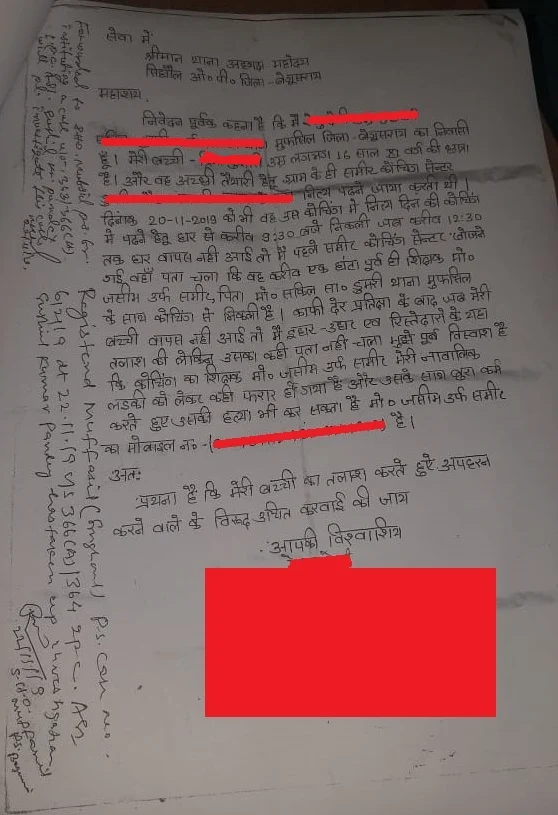 सेवा में,
श्रीमान थाना अध्यक्ष महोदय
सिंघौल ओ० पी० जिला - बेगूसराय
महाशय,
निवेदन पूर्वक कहना है कि मैं
मुफसिल जिला - बेगूसराय का निवासी
हूँ। मेरी बच्ची - उम्र लगभग 16 साल
है। और वह अच्छी तैयारी हेतु ग्राम के ही समीर कोचिंग सेन्टर
नित्य पढ़ने जाया करती थी
दिनांक 20-11-2019 को भी वह उस कोचिंग में नित्य दिन की कोचिंग
में पढ़ने हेतु घर से करीब 9:30 बजे निकली जब करीब 12:30
तक घर वापस नहीं आई तो मैं पहले समीर कोचिंग सेन्टर खोजने
गई वहाँ पता चला कि वह करीब एक घंटा पूर्व ही शिक्षक मो०
जसीम उर्फ समीर, पिता मो० सा० डुमरी थाना मुफसिल
के साथ कोचिंग से निकली है। काफी देर प्रतिक्षा के बाद जब मेरी
बच्ची वापस नही आई तो मैं इधर-उधर एवं रिस्तेदारो के यहा
तलाश की लेकिन उसका कही पता नही चला मुझे पूर्ण विस्वाश है
कि कोचिंग का शिक्षक मो० जसीम उर्फ समीर मेरी नाबालिक
लड़की को लेकर कही फरार हो गया है और उसके साथ बुरा कर्म
करते हुए उसकी हत्या भी कर सकता है मो० जसीम उर्फ समीर
का मोबाइल न० - है।
अतः
प्रथना है कि मेरी बच्ची का तलाश करते हुए अपहरन
करने वाले के विरूद्ध उचित करवाई की जाय
आपकी विश्वाशिय
Forwarded to SHO Mufasil P.S. for
instituting a case u/s. 363/366(A)
I.P.C.
will pl. investigate the case
Registerd Muffasil (Singhaul) P.S. Case no.
619/19 dt 22.11.19 u/s 366(A)/364 I.P.C. ASI
Sushil Kumar Pandey
22/11/19
S.H.O. Muffasil
P.S.